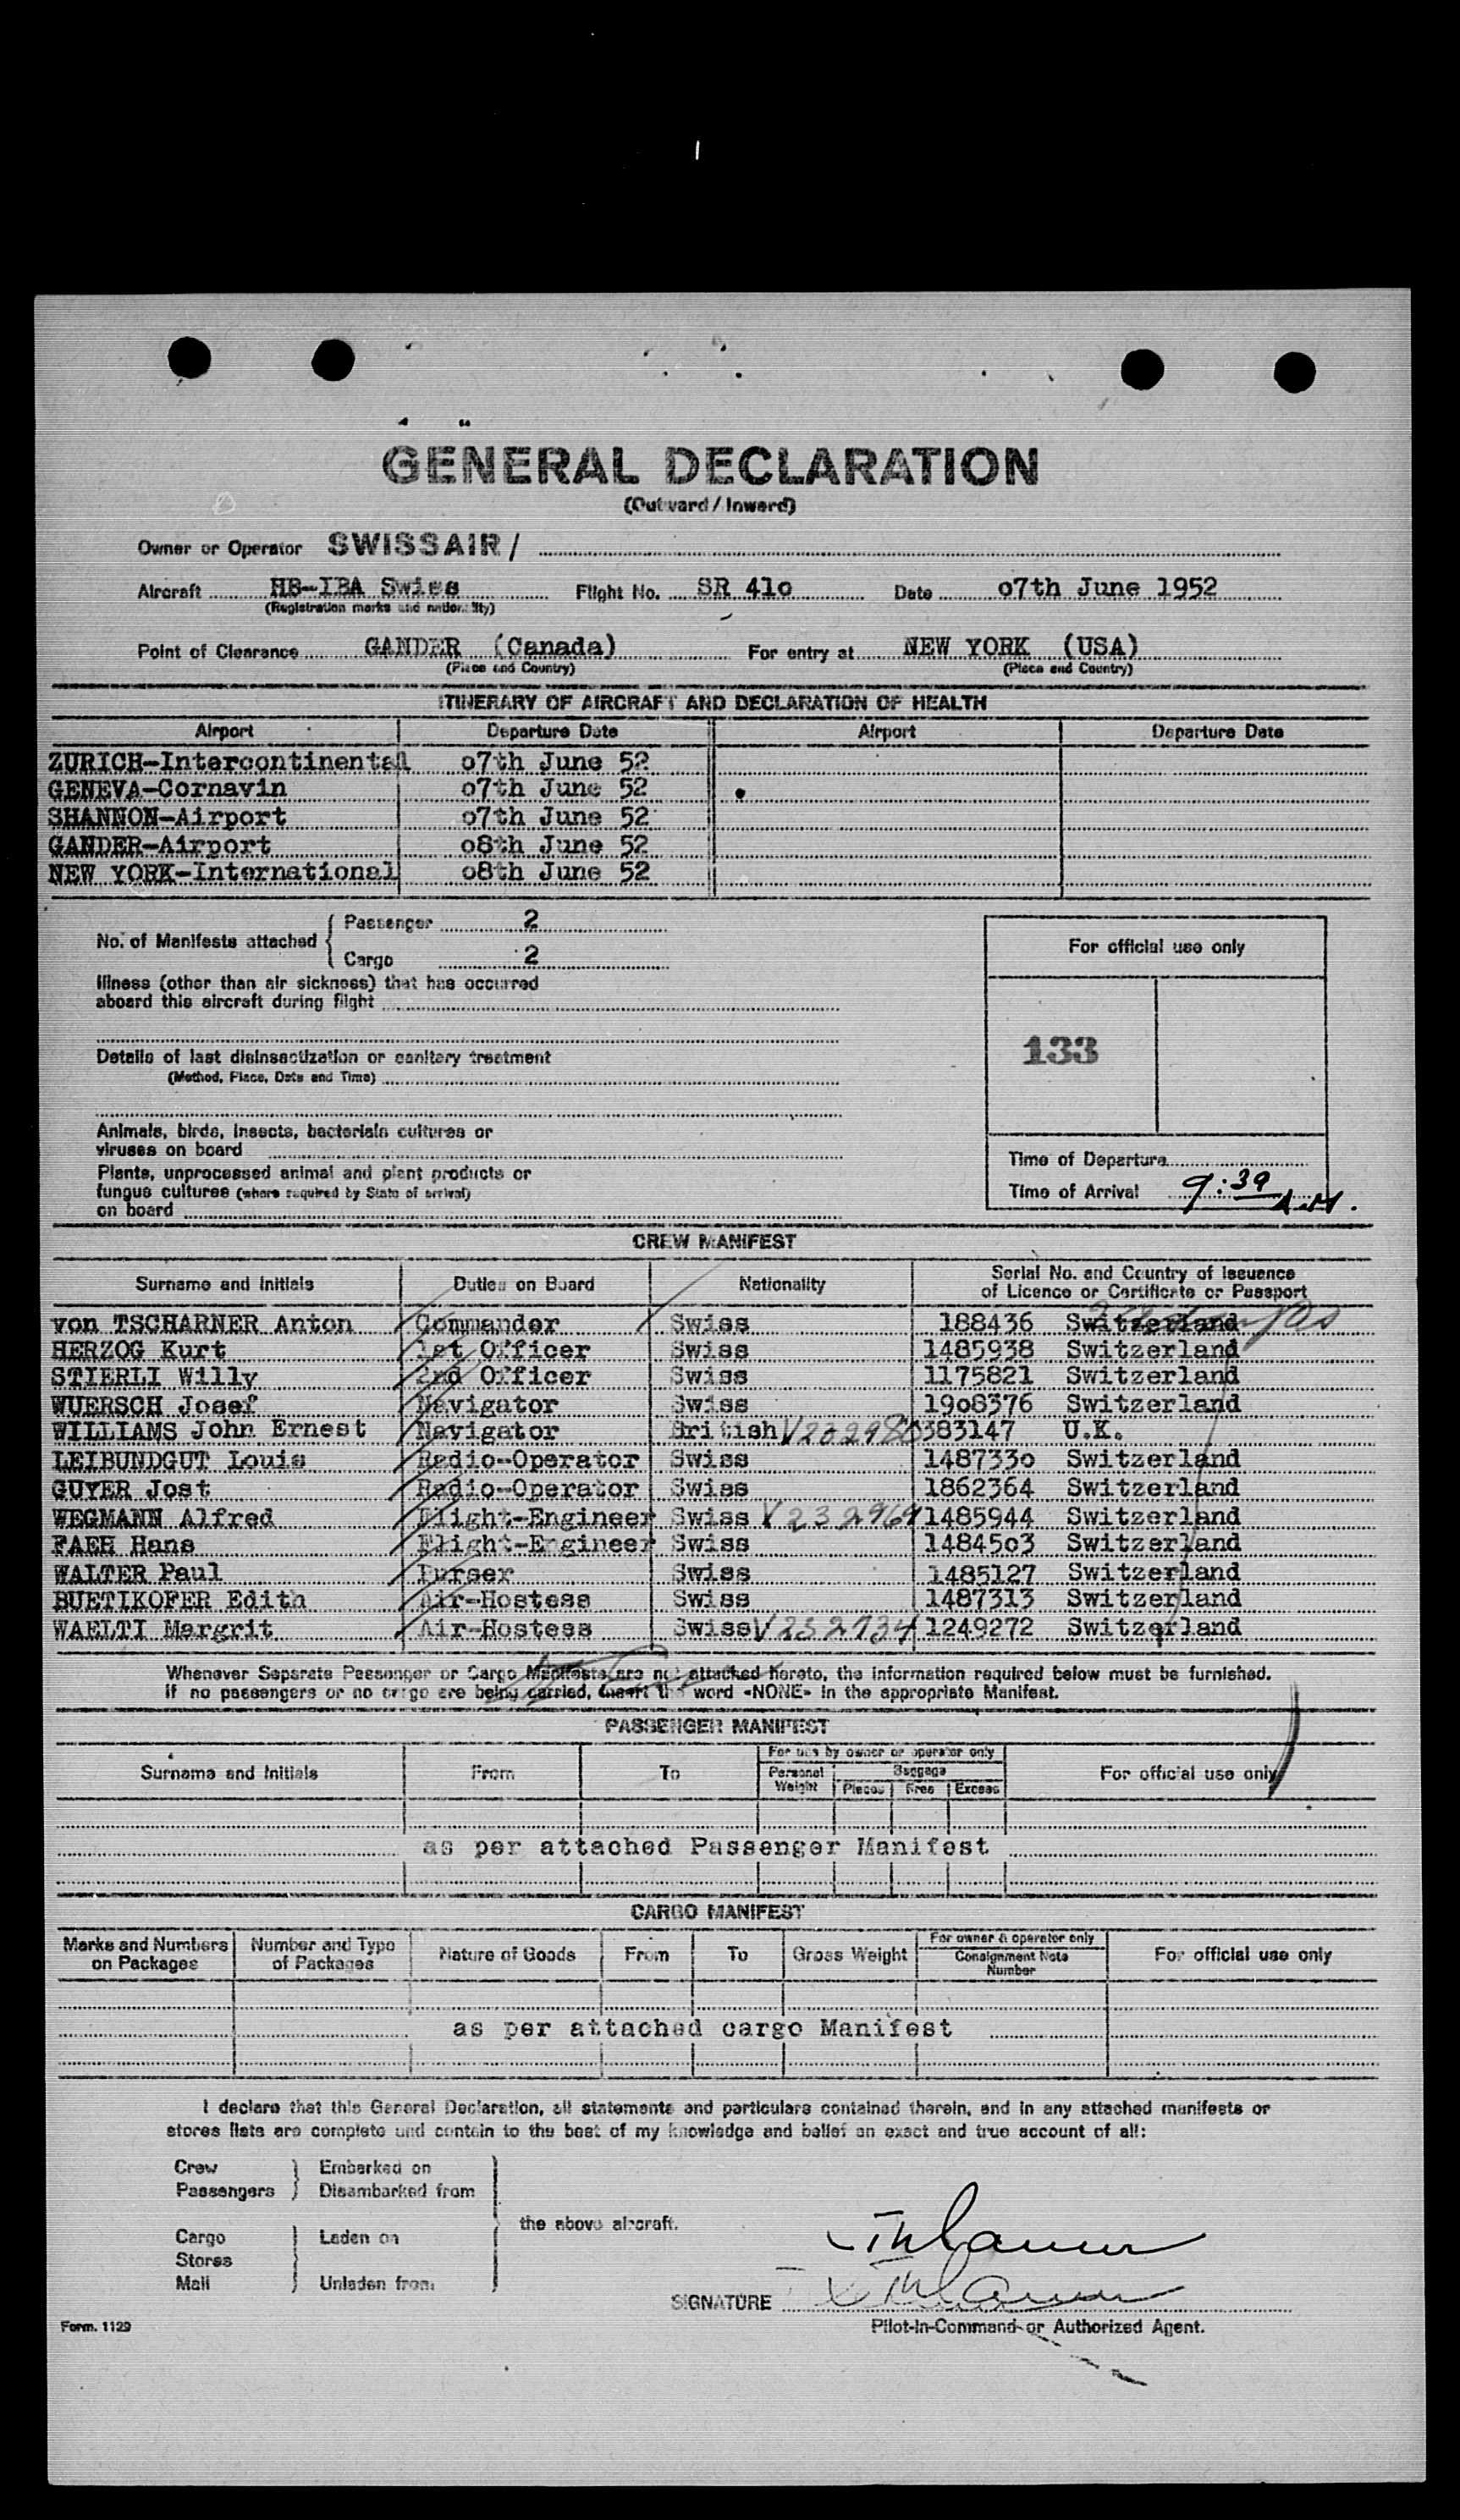 GENERAL DECLARATION
(Outward / Inward)
Owner or Operator SWISSAIR /
Aircraft HB-IBA Swiss Flight No. SR 41o Date o7th June 1952
(Registration marks and nationality)
Point of Clearance GANDER (Canada) For entry at NEW YORK (USA)
(Place and Country) (Place and Country)
ITINERARY OF AIRCRAFT AND DECLARATION OF HEALTH
Airport Departure Date Airport Departure Date
ZURICH-Intercontinental o7th June 52
GENEVA-Cornavin o7th June 52
SHANNON-Airport o7th June 52
GANDER-Airport o8th June 52
NEW YORK-International o8th June 52
No. of Manifests attached { Passenger 2
Cargo 2
For official use only
Illness (other than air sickness) that has occurred
aboard this aircraft during flight
Details of last disinsectization or sanitary treatment
(Method, Place, Date and Time)
133
Animals, birds, insects, bacterials cultures or
viruses on board
Plants, unprocessed animal and plant products or
fungus cultures (where required by State of arrival)
on board
Time of Departure
Time of Arrival 9:39 A.M.
CREW MANIFEST
Surname and Initials Duties on Board Nationality Serial No. and Country of Issuance
of Licence or Certificate or Passport
von TSCHARNER Anton Commander Swiss 188436 Switzerland
HERZOG Kurt 1st Officer Swiss 1485938 Switzerland
STIERLI Willy 2nd Officer Swiss 1175821 Switzerland
WUERSCH Josef Navigator Swiss 19o8376 Switzerland
WILLIAMS John Ernest Navigator British V232980 383147 U.K.
LEIBUNDGUT Louis Radio-Operator Swiss 148733o Switzerland
GUYER Jost Radio-Operator Swiss 1862364 Switzerland
WEGMANN Alfred Flight-Engineer Swiss V232969 1485944 Switzerland
FAEH Hans Flight-Engineer Swiss 14845o3 Switzerland
WALTER Paul Purser Swiss 1485127 Switzerland
BUETIKOFER Edith Air-Hostess Swiss 1487313 Switzerland
WAELTI Margrit Air-Hostess Swiss V232734 1249272 Switzerland
Whenever Separate Passenger or Cargo Manifests are not attached hereto, the information required below must be furnished.
If no passengers or no cargo are being carried, insert the word «NONE» in the appropriate Manifest.
PASSENGER MANIFEST
Surname and Initials From To For use by owner or operator only For official use only
Personal Weight Baggage
Pieces Free Excess
as per attached Passenger Manifest
CARGO MANIFEST
Marks and Numbers on Packages Number and Type of Packages Nature of Goods From To Gross Weight For owner & operator only For official use only
Consignment Note Number
as per attached cargo Manifest
I declare that this General Declaration, all statements and particulars contained therein, and in any attached manifests or
stores lists are complete und contain to the best of my knowledge and belief an exact and true account of all:
Crew } Embarked on
Passengers } Disembarked from
the above aircraft.
Cargo } Laden on
Stores
Mail } Unladen from
SIGNATURE
Form. 1129
Pilot-in-Command or Authorized Agent.